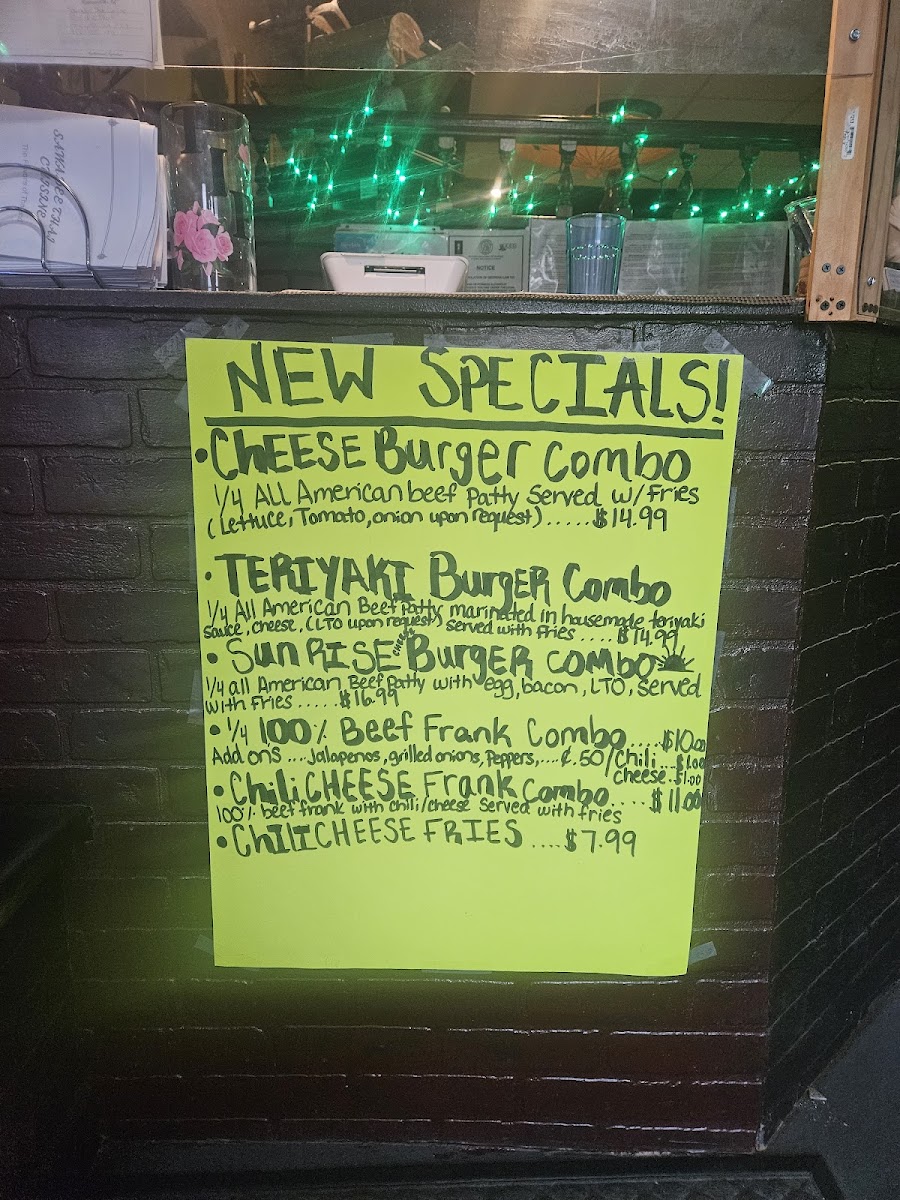 NOTICE
NEW SPECIALS!
•CHEESE Burger Combo
1/4 All American beef Patty Served w/ Fries
(Lettuce, Tomato, onion upon request).....$14.99
•TERIYAKI BurgER Combo
1/4 All American Beef Patty marinated in housemade teriyaki
sauce, cheese, (LTO upon request) served with fries .... $14.99
• SunRISE cheese BurgER combo
1/4 all American Beef Patty with egg, bacon, LTO, served
with Fries .....$16.99
•1/4 100% Beef Frank Combo....$10.00
Add ons ...Jalapenos, grilled onions, Peppers,....¢.50/Chili...$1.00
cheese.$1.00
•Chili CHEESE Frank Combo.....$11.00
100% beef frank with chili/cheese served with fries
•CHILI CHEESE FRIES ....$7.99